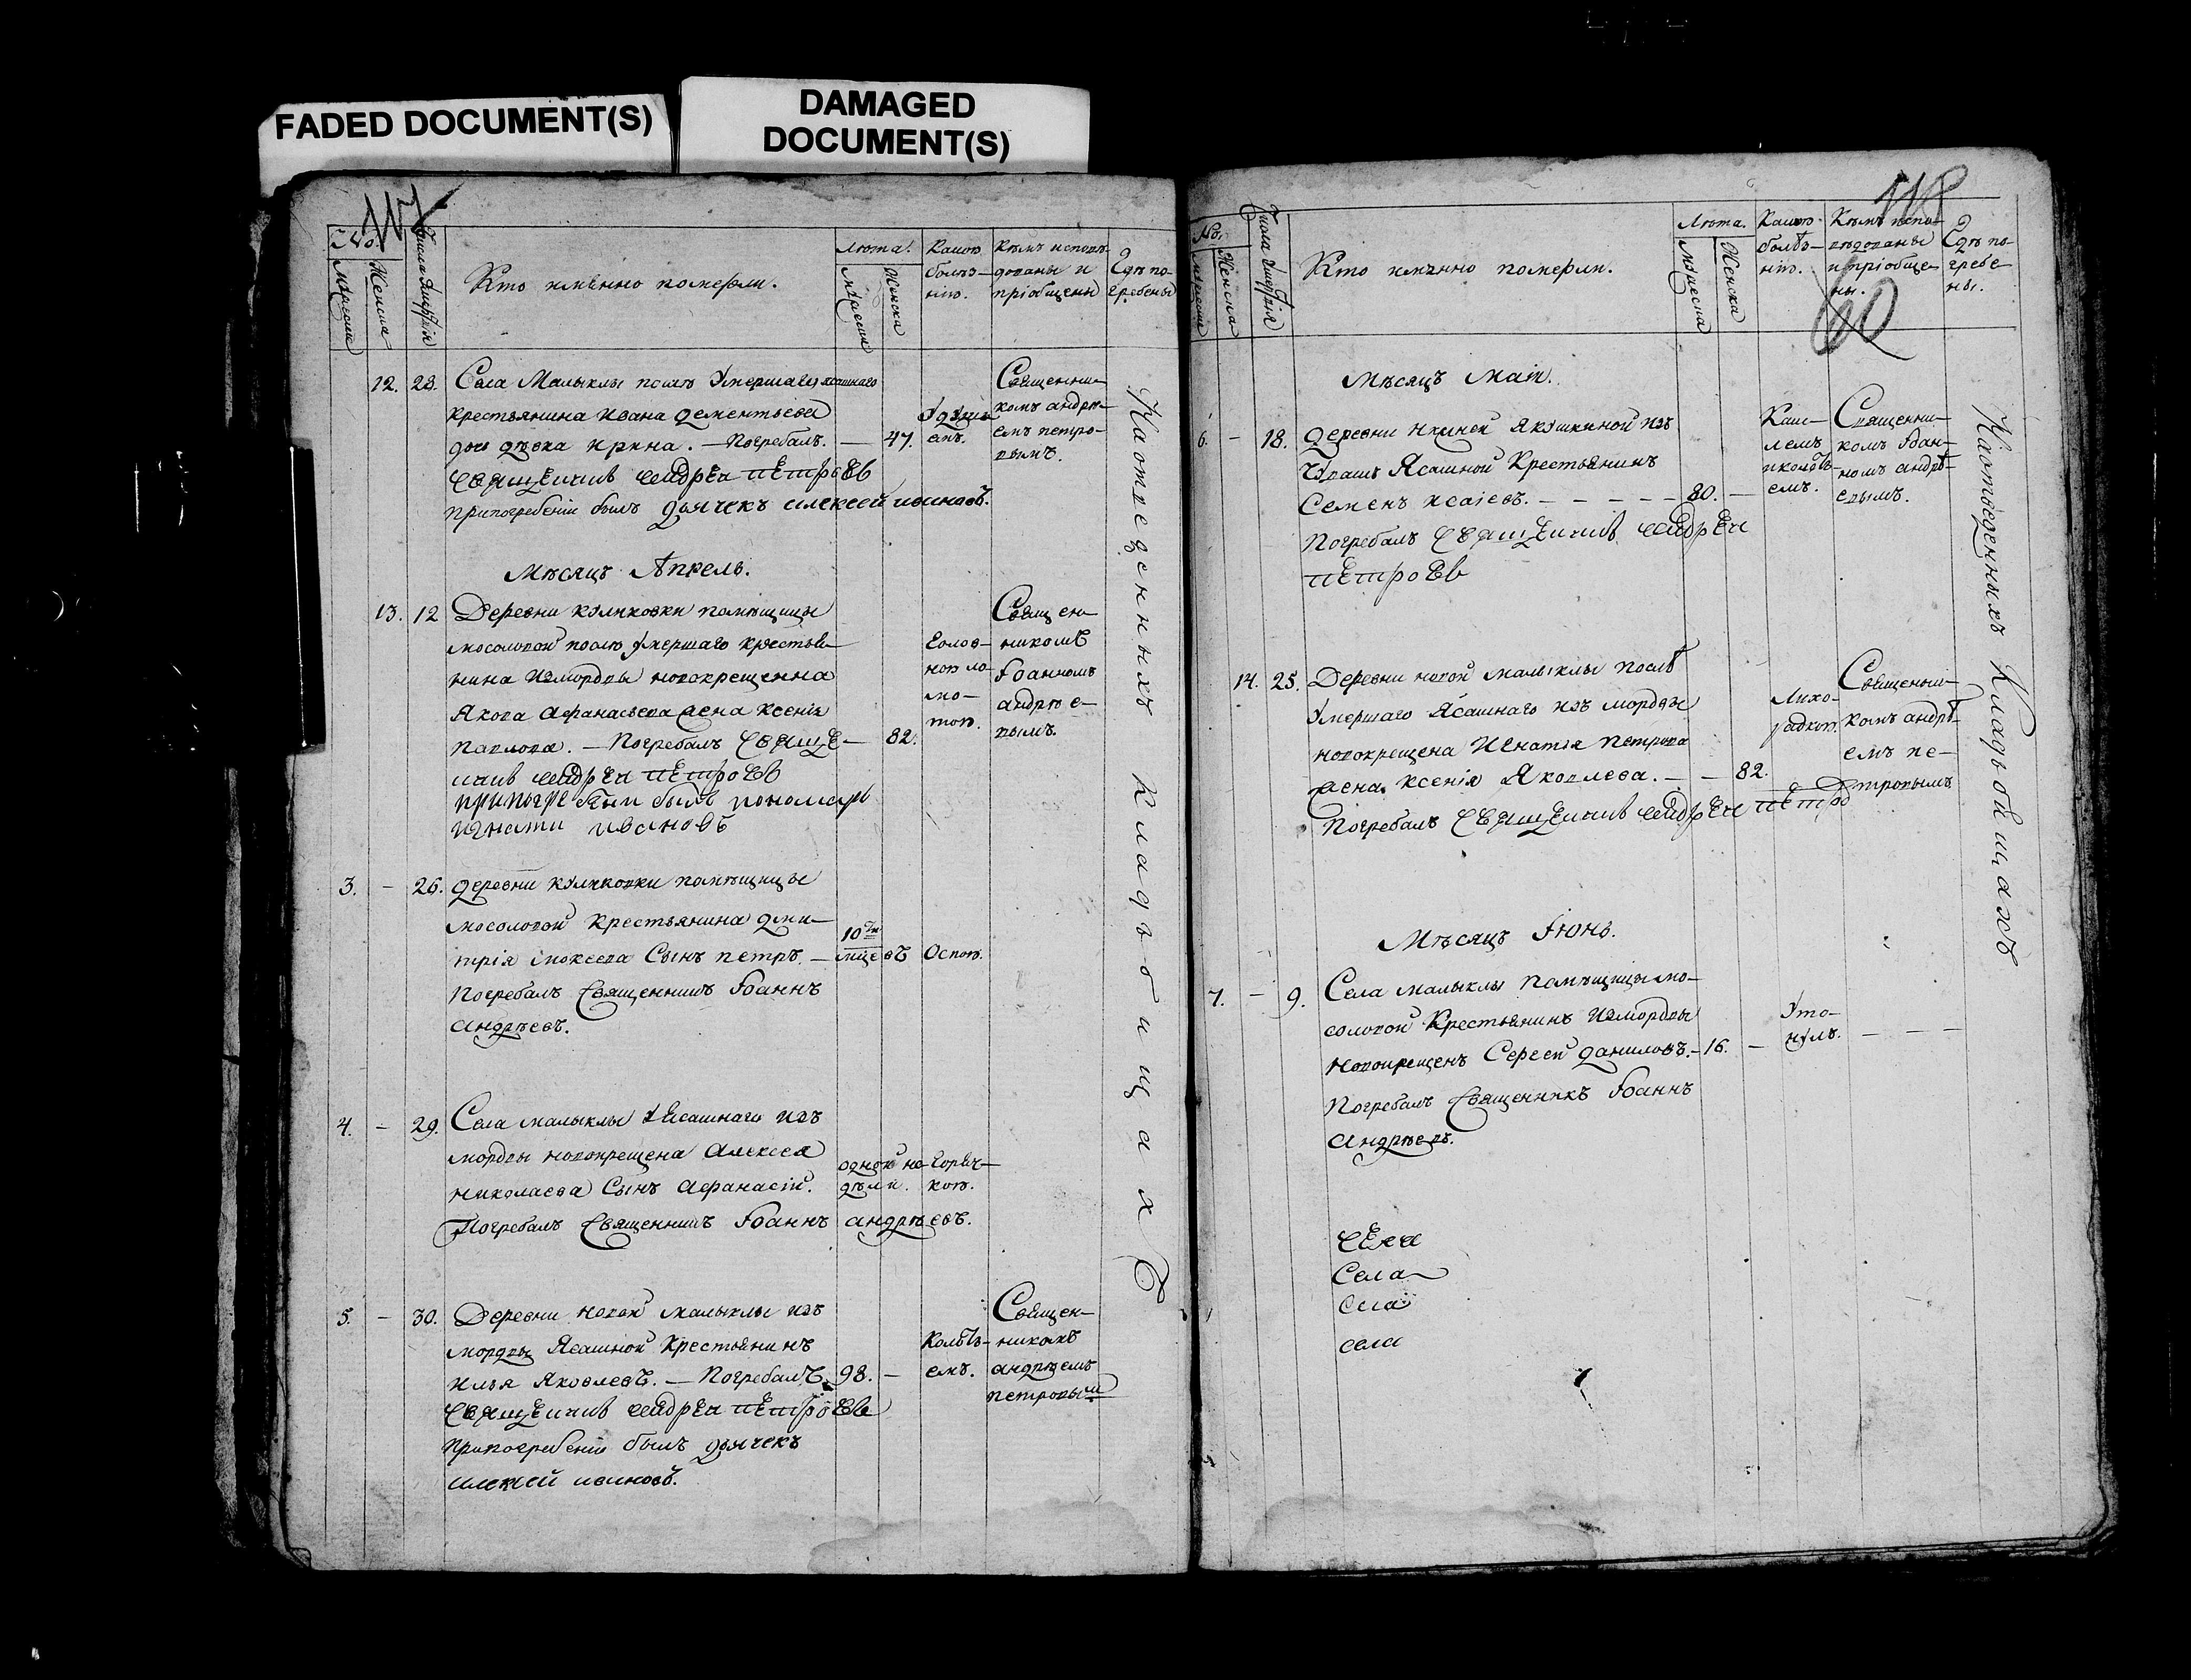 FADED DOCUMENT(S)
DAMAGED
DOCUMENT(S)
117
№.
Мужеска
Женска
Числа умертвія
Кто имянно померли.
Лѣта.
Мужеска
Женска
Какою
болѣз-
нію.
Кѣмъ исповѣ-
дованы и
пріобщены
Гдѣ по-
гребены
12. 23. Села Малыклы послѣ умершаго ясашнаго
крестьянина Ивана Дементьева
дочь дѣвка Ирина. — Погребалъ. — 47.
священникъ андреи петровъ
Припогребеніи былъ дьячекъ алексей ивановъ.
Удушь-
емъ.
Священни-
комъ андрѣ-
емъ петро-
вымъ.
Мѣсяцъ Апрель.
13. 12 Деревни куликовки помѣщицы
мосоловой послѣ умершаго крестья-
нина измордвы новокрещенна
Якова Афанасьева жена ксенія
павлова. — Погребалъ свяще- 82.
никъ андреи петровъ
припогребени былъ пономарь
игнати ивановъ
голов-
ною ло-
мо-
тою.
Священ-
никомъ
Іоанномъ
андрѣе-
вымъ.
3. – 26. деревни куликовки помѣщицы
мосоловой крестьянина дми-
трія мокеева Сынъ петръ. —
Погребалъ Священникъ Іоаннъ
андрѣевъ.
10ти
мцевъ
Оспою.
4. – 29. Села малыклы Ясашнаго изъ
мордвы новокрещена Алексея
николаева Сынъ Афанасій.
Погребалъ Священникъ Іоаннъ андрѣевъ.
одной не-
дѣли.
горяч-
кою.
5. – 30. Деревни новой малыклы изъ
мордвы Ясашной крестьянинъ
илья Яковлевъ. — Погребалъ. 98. –
священникъ андреи петровъ
припогребении былъ дьячекъ
алексей ивановъ.
Колоть-
емъ.
Священ-
никомъ
андрѣемъ
петровым
На отведенныхъ кладьбищахъ
118
60
№.
Мужеска
Женска
Числа умертвія
Кто имянно померли.
Лѣта.
Мужеска
Женска
Какою
болѣз-
нію.
Кѣмъ испо-
вѣдованы
и пріобще-
ны.
Гдѣ по-
гребе-
ны.
Мѣсяцъ Маій.
6. – 18. деревни нижней Якушкиной изъ
Чувашъ Ясашной крестьянинъ
Семенъ исаіевъ. – – – – – 80. –
Погребалъ священникъ андреи
петровъ
Каш-
лемъ
иколоть-
емъ.
Священни-
комъ Іоан-
номъ андрѣ-
евымъ.
14. 25. Деревни новой малыклы послѣ
умершаго Ясашнаго изъ мордвы
новокрещена Игнатія петрова
жена ксенія Яковлева. – – 82.
Погребалъ священникъ андреи петро
Лихо-
радкою.
Священни-
комъ андрѣ-
емъ пе-
тровымъ
Мѣсяцъ Іюнь.
7. – 9. Села малыклы помѣщицы мо-
соловой крестьянинъ измордвы
новокрещенъ Сергей даниловъ. – 16. –
Погребалъ Священникъ Іоаннъ
Андрѣевъ.
Уто-
нулъ.
– – –
села
Села
села
села
На отведенныхъ кладьбищахъ